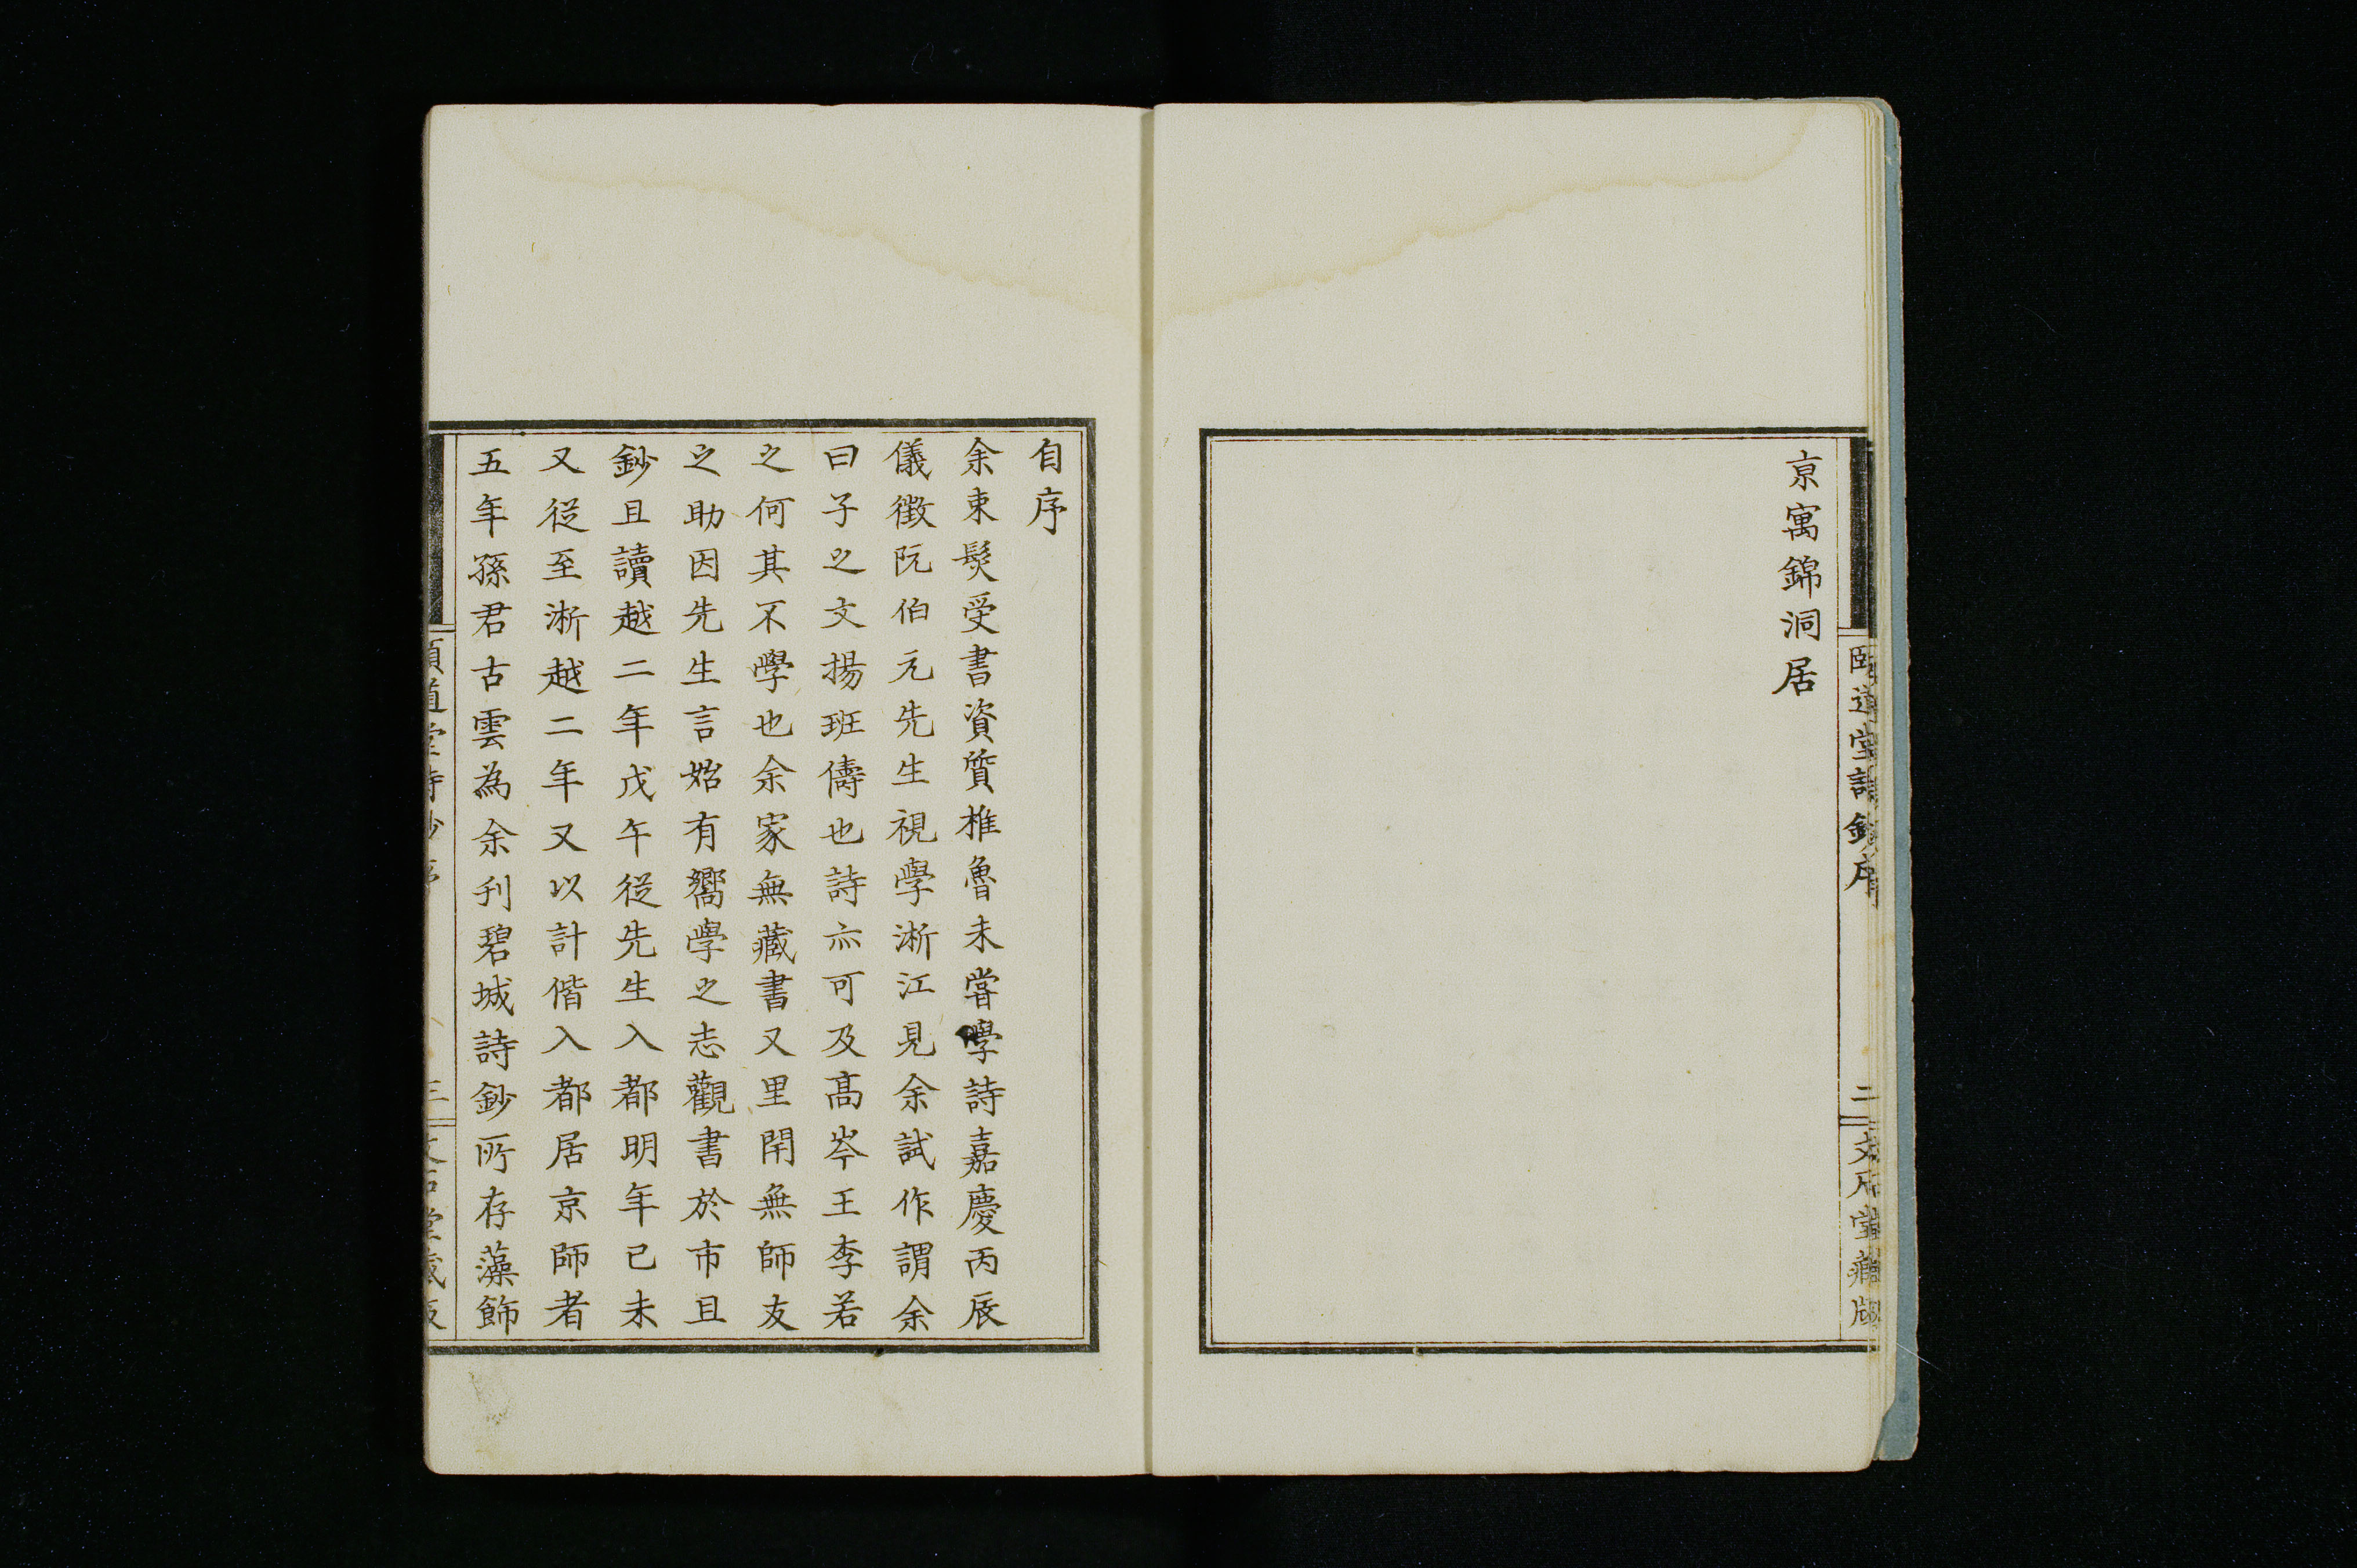 京寓錦洞居
頤道堂詩鈔序
二
文石堂藏版
自序
余束髮受書資質椎魯未嘗學詩嘉慶丙辰
儀徵阮伯元先生視學浙江見余試作謂余
曰子之文揚班儔也詩亦可及高岑王李若
之何其不學也余家無藏書又里閈無師友
之助因先生言始有嚮學之志觀書於市且
鈔且讀越二年戊午從先生入都明年己未
又從至浙越二年又以計偕入都居京師者
五年孫君古雲為余刊碧城詩鈔所存藻飾
三